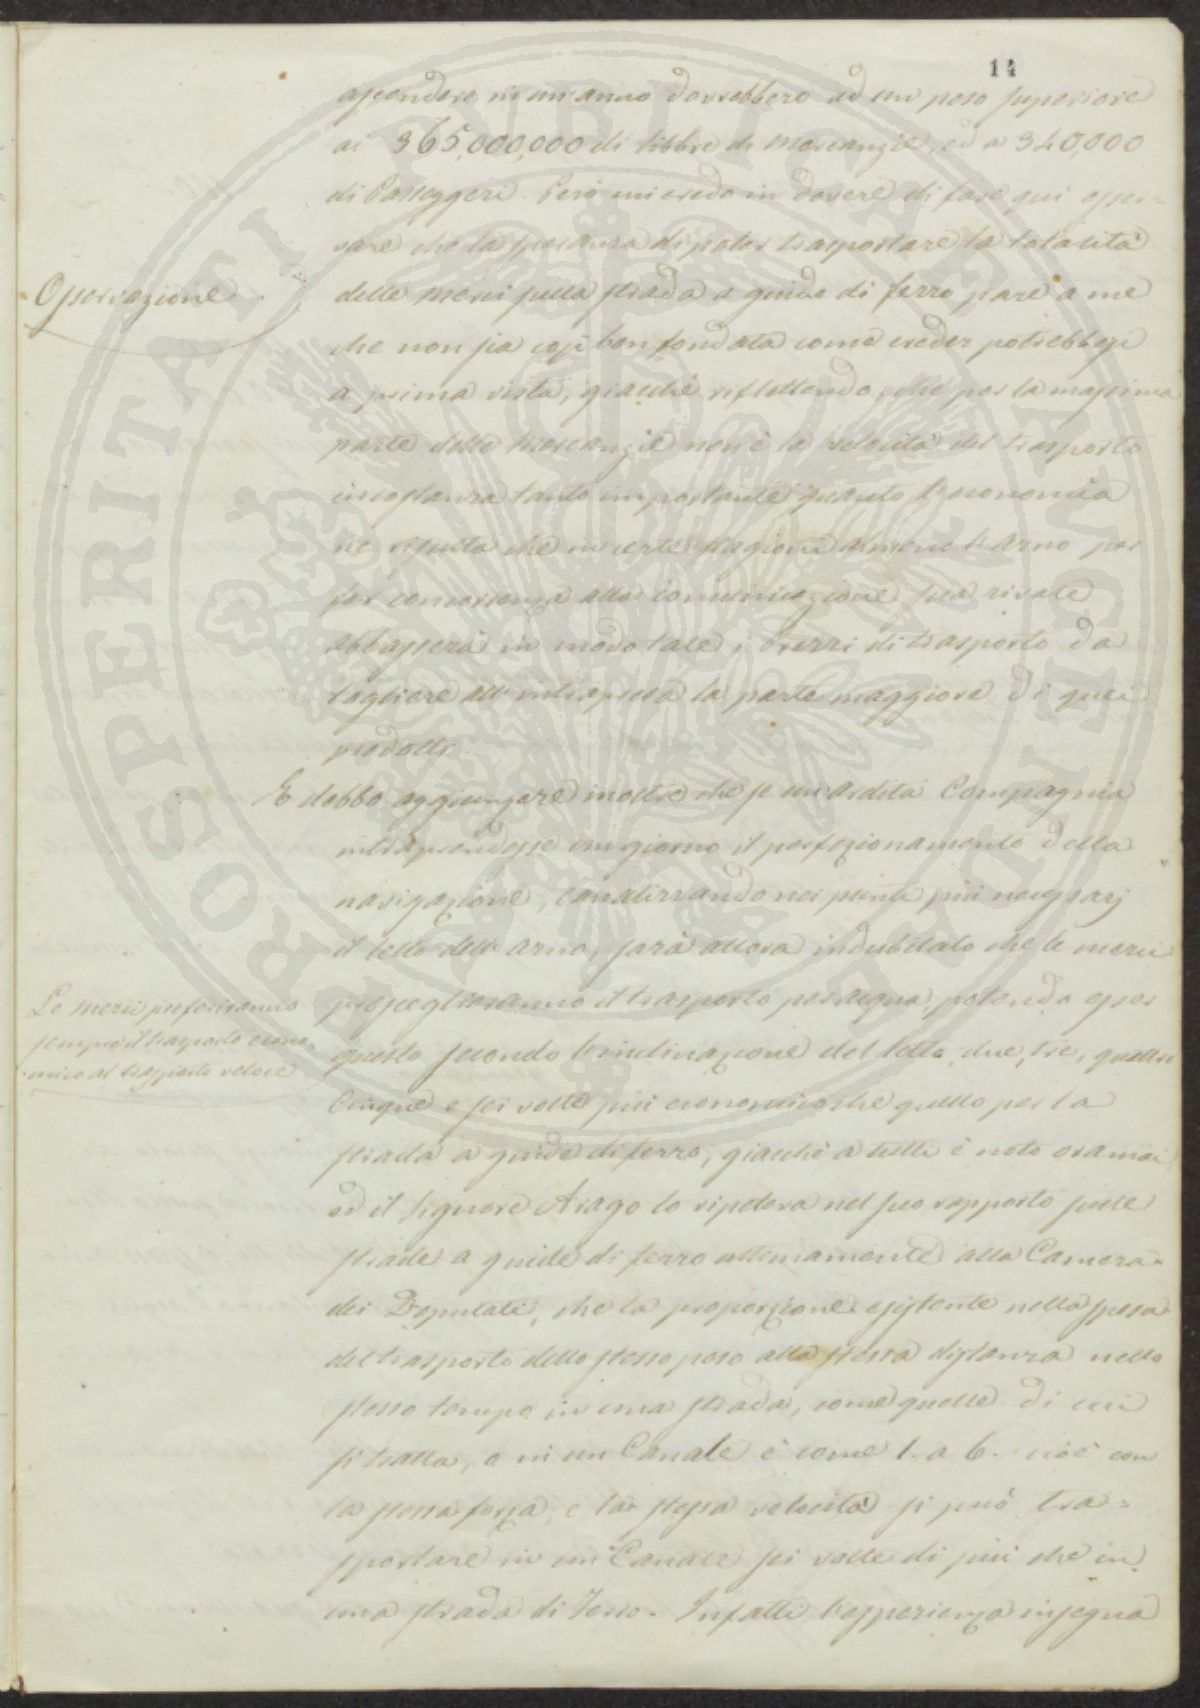 14
ascendere in un anno dovrebbero ad un peso superiore
ai 365,000,000 di libbre di mercanzie, ed a 340,000
di Passeggeri. Però mi credo in dovere di fare qui osser=
vare che la speranza di poter trasportare la totalità
Osservazione
delle merci sulla strada a guide di ferro pare a me
che non sia così ben fondata come creder potrebbesi
a prima vista, giacchè riflettendo, che per la massima
parte delle mercanzie non è la velocità del trasporto
circostanza tanto importante quanto l'economia
ne risulta che in certe stagioni almeno l'Arno per
far concorrenza alla comunicazione sua rivale
abbasserà in modo tale i prezzi di trasporto da
togliere all'intrapresa la parte maggiore di quei
prodotti.
E debbo aggiungere inoltre che se un ardita Compagnia
intraprendesse un giorno il perfezionamento della
navigazione, canalizzando nei punti più necessarj
il letto dell'Arno, sarà allora indubitato che le merci
Le merci preferiranno
sempre il trasporto econo=
mico al trasporto veloce
prosceglieranno il trasporto per acqua, potendo esser
questo secondo l'inclinazione del letto due, tre, quattro
Cinque e sei volte più economico che quello per la
strada a guide di ferro, giacchè a tutti è noto oramai
ed il Signore Arago lo ripeteva nel suo rapporto sulle
strade a guide di ferro ultimamente alla Camera
dei Deputati, che la proporzione esistente nella spesa
del trasporto dello stesso peso alla stessa distanza nello
stesso tempo in una strada, come quelle di cui
si tratta, o in un Canale è come 1. a 6. cioè con
la stessa forza, e la stessa velocità si può tra=
sportare in un Canale sei volte di più che in
una strada di Ferro. Infatti l'esperienza insegna
PROSPERITATI PVBLICAE AVGENDAE